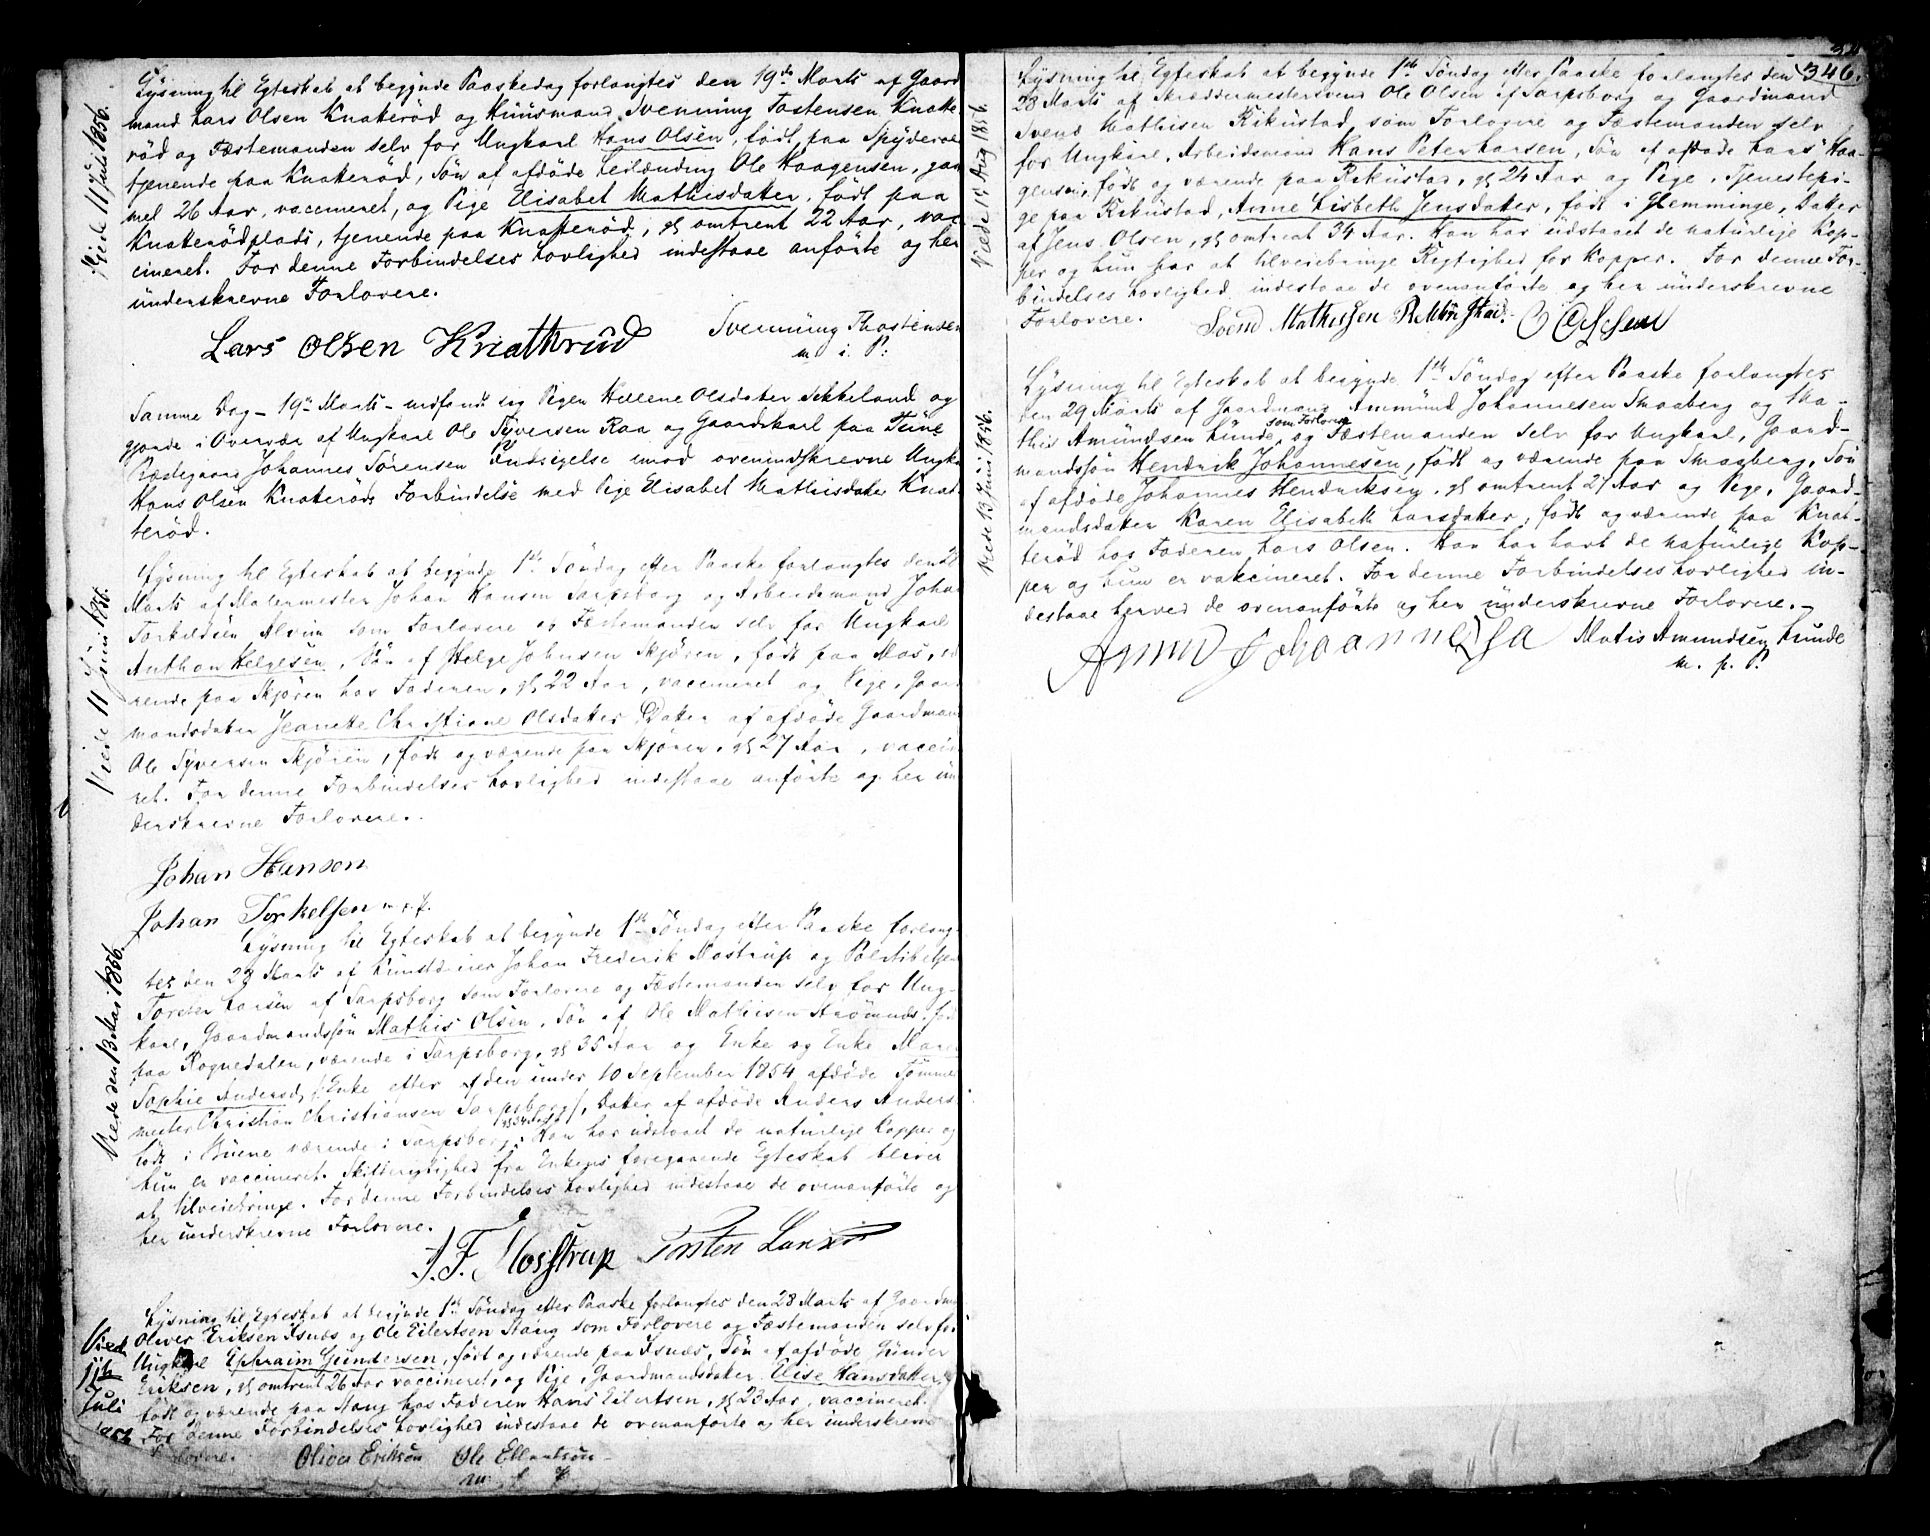 Lysning til Egteskab at begynde Paaskedag forlangtes den 19de Marts af Gaard
mand Lars Olsen Knatterød og Huusmand Svenning Tostensen Knatte
rød og Fæstemanden selv for Ungkarl Hans Olsen, født paa Spydeve
tjenende paa Knatterød, Søn af afdøde Leilænding Ole Haagensen, gam
mel 26 Aar, vaccineret, og Pige Elisabet Mathisdatter, født paa
Knatterødplads, tjenende paa Knatterød, gl omtrent 22 Aar, vac
cineret. For denne Forbindelses Lovlighed indestaae anførte og her
underskrevne Forlovere.
Viede 11 Juli 1856.
Lars Olsen Knatterud Svenning Thostensen
m. i. P.
Samme Dag - 19de Marts - indfandt sig Pigen Hellene Olsdatter Sikkeland og
gjorde i Overvær af Ungkarl Ole Syversen Raa og Gaardskarl paa Tune
Prædegaard Johannes Sørensen Indsigelse imod ovenindskrevne Ungk
Hans Olsen Knatterøds Forbindelse med Pige Elisabet Mathisdatter Knat
terød.
Lysning til Egteskab at begynde 1ste Søndag efter Paaske forlangtes den
Marts af Malermester Johan Hansen Sarpsborg og Arbeidsmand Johan
Torkildsen Alvim som Forlovere og Fæstemanden selv for Ungkarl
Anthon Helgesen, Søn af Helge Johnsen Skjøren, født paa Mos, væ
rende paa Skjøren hos Faderen, gl 22 Aar, vaccineret og Pige, Gaar
mandsdatter Jeanette Christiane Olsdatter Datter af afdøde Gaardmand
Ole Syversen Skjøren, født og værende paa Skjøren, gl 27 Aar, vaccine
ret. For denne Forbindelses Lovlighed indestaae anførte og her un
derskrevne Forlovere.
Viede 11 Juni 1856.
Johan Hansen
Johan Torkelsen m. p.
Lysning til Egteskab at begynde 1ste Søndag efter Paaske forlang
tes den 23 Marts af Johan Frederik Mostrup og
Torsten Larsen af Sarpsborg som Forlovere og Fæstemanden selv for Ung-
karl, Gaardmandssøn Mathis Olsen, Søn af Ole Mathisen Strømnes, fød
paa Rognedalen, værende i Sarpsborg, gl 35 Aar og Enke og Enke Maren
Sophie Andersd, /:Enke efter den under 10 September 1854 afdøde Tømmer
mester Christian Christiansen Sarpsborg/, Datter af afdøde Anders Anders
født i værende i Sarpsborg. Han har udstaaet de naturlige Kopper og
hun er vaccineret. Skifterigtighed fra Enkens foregaaende Egteskab bliver
at tilveiebringe. For denne Forbindelses Lovlighed indestaae de ovenanførte og
her underskrevne Forlovere.
Viede den 1856.
J. F. Mosstrup Torsten Larsen
Lysning til Egteskab at begynde 1ste Søndag efter Paaske forlangtes den 28 Marts af Gaardma
Oliver Eriksen Isnæs og Ole Eilertsen Stang som Forlovere og Fæstemanden selv for
Ungkarl Ephraim Gundersen, født og værende paa Isnæs, Søn af afdøde Gunder
Eriksen, gl omtrent 26 Aar vaccineret, og Pige, Gaardmandsdatter Elise Hansdatter,
født og værende paa Stang hos Faderen Hans Eilertsen, gl 23 Aar, vaccineret.
For denne Forbindelses Lovlighed indestaae de ovenanførte og her underskrevne
Forlovere.
Vied
11te
Juli
1856
Oliver Eriksøn Ole Ellertsøn
m. f. P.
346.
Lysning til Egteskab at begynde 1ste Søndag efter Paaske forlangtes den
28 Marts af Skræddermestersvend Ole Olsen af Sarpsborg og Gaardmand
Svend Mathisen Rikustad som Forlovere og Fæstemanden selv
for Ungkarl, Arbeidsmand Hans Peter Larsen, Søn af afdøde Lars Haa-
gensen, født og værende paa Rikustad, gl 24 Aar og Pige, Tjenestepi-
ge paa Rikustad, Anne Lisbeth Jensdatter, født i Glemminge, Datter
af Jens Olsen, gl omtrent 34 Aar. Han har udstaaet de naturlige Kop-
per og hun har at tilveiebringe Rigtighed for Kopper. For denne For-
bindelses Lovlighed indestaae de ovenanførte og her underskrevne
Forlovere.
Viede 1ste Aug 1856.
Svend Mathissen O Olsen
Lysning til Egteskab at begynde 1ste Søndag efter Paaske forlangtes
den 29 Marts af Gaardmand Ammund Johannesen Skaaberg og Ma-
this Amundsen Lunde som Forlovere og Fæstemanden selv for Ungkarl, Gaard-
mandssøn Hendrik Johannesen, født og værende paa Skaaberg, Søn
af afdøde Johannes Hendriksen, gl omtrent 21 Aar og Pige, Gaard-
mandsdatter Karen Elisabeth Larsdatter, født og værende paa Knat-
terød hos Faderen, Lars Olsen. Han har havt de naturlige Kop-
per og hun er vakcineret. For denne Forbindelses Lovlighed in-
destaae herved de ovenanførte og her underskrevne Forlovere.
Viede 13 Juni 1856.
Mathis Amundsen Lunde
m. p. P.